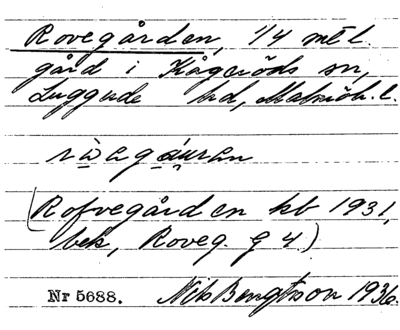 Rovegården, 1/4 mtl.
gård i Kågeröds sn,
Luggude hd, Malmöh. l.
(Rofvegården kb 1931,
bek, Roveg. G 4)
Nr 5688. Nils Bengtsson 1936.